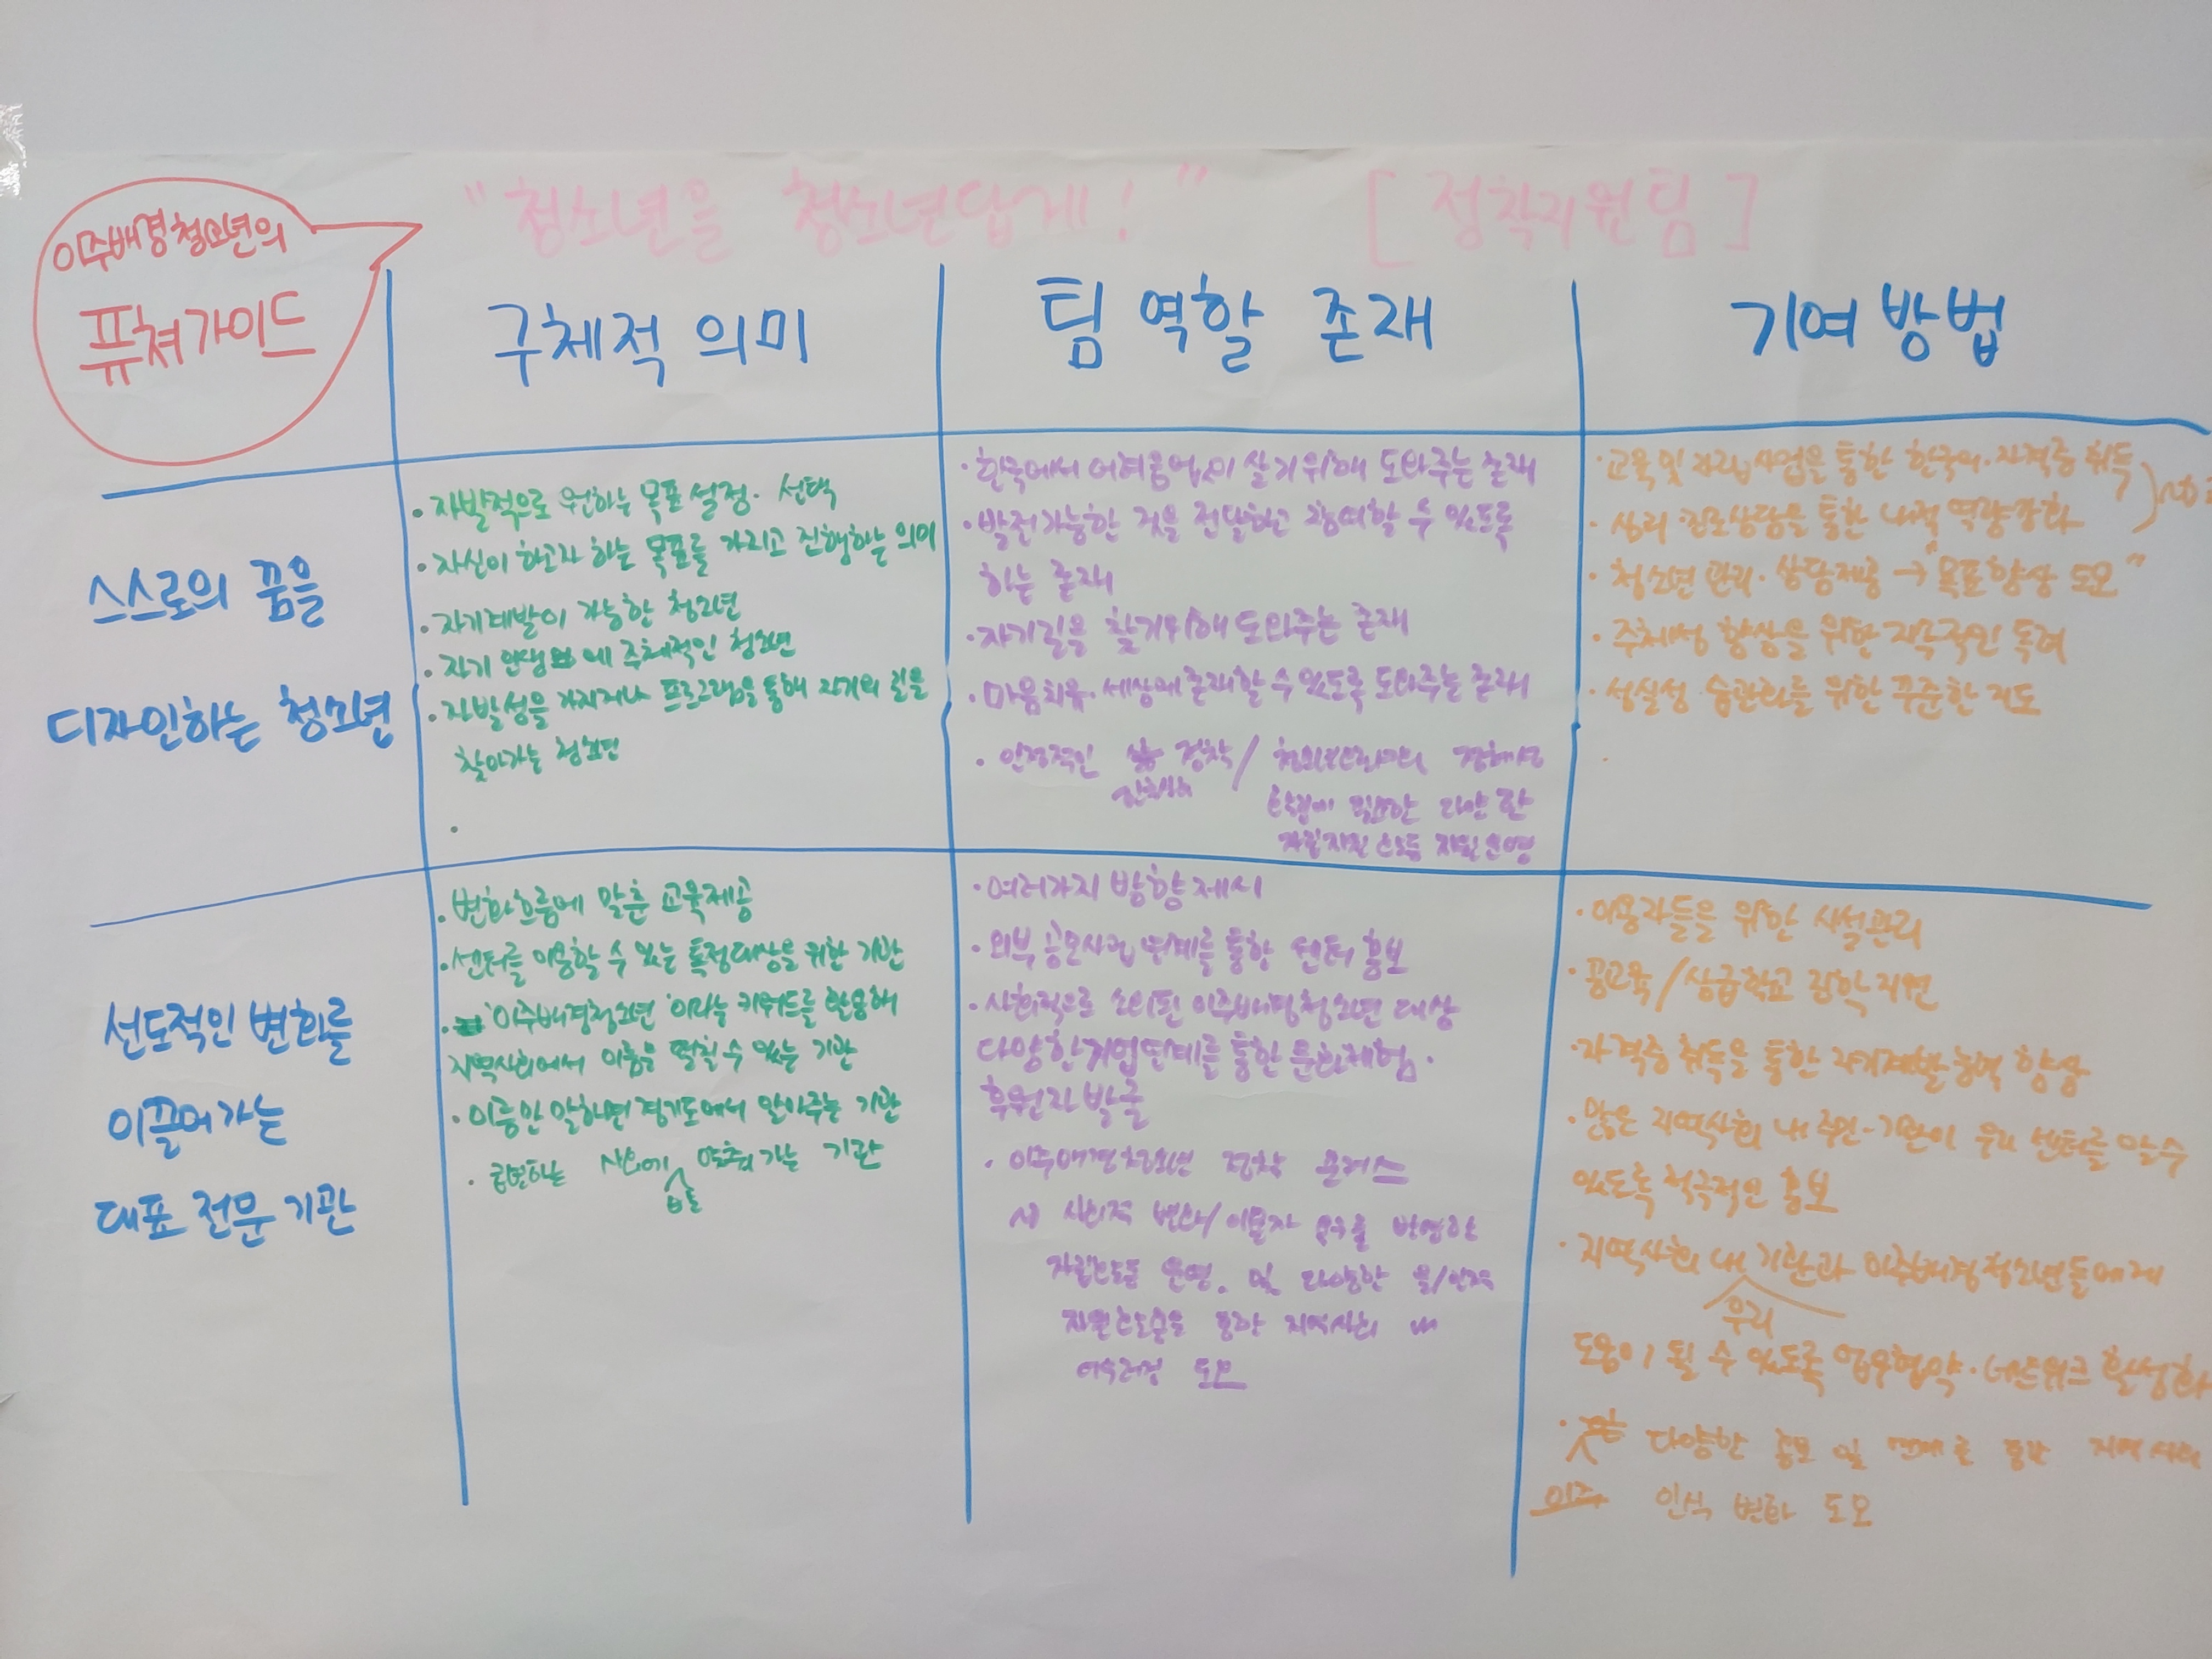 이주배경청소년의
퓨쳐가이드
"청소년을 청소년답게!" [정착지원팀]
구체적 의미
팀 역할 존재
기여 방법
스스로의 꿈을
디자인하는 청소년
· 자발적으로 원하는 목표 설정. 선택
· 자신이 하고자 하는 목표를 가지고 진행하는 의미
· 자기계발이 가능한 청소년
· 자기 인생 에 주체적인 청소년
· 자발성을 가지거나 프로그램을 통해 자기의 길을
찾아가는 청소년
· 한국에서 어려움없이 살기위해 도와주는 존재
· 발전가능한 것을 전달하고 참여할 수 있도록
하는 존재
· 자기길을 찾기위해 도와주는 존재
· 마음치유. 세상에 존재할 수 있도록 도와주는 존재
· 안정적인 정착/
필요한 다양한
· 교육 및 자립사업을 통한 한국어·자격증 취득
· 심리·진로상담을 통한 내적 역량강화
· 청소년 관리·상담제공 → "목표향상 도모"
· 주체성 향상을 위한 지속적인 독려
· 성실성 습관화를 위한 꾸준한 지도
선도적인 변화를
이끌어가는
대표 전문 기관
· 변화흐름에 맞춘 교육제공
· 센터를 이용할 수 있는 특정대상을 위한 기관
· '이주배경청소년'이라는 키워드를 활용해
지역사회에서 이름을 떨칠 수 있는 기관
· 이름만 말하면 경기도에서 알아주는 기관
· 급변하는 사회에 맞춰가는 기관
발
· 여러가지 방향제시
· 외부 공모사업 연계를 통한 센터 홍보
· 사회적으로 소외된 이주배경청소년 대상
다양한 기업연계를 통한 문화체험.
후원자 발굴
· 이주배경청소년 정착
사회적 변화/이용자 욕구를 반영한
운영. 및 다양한 물/인적
통한 지역사회 내
도모
· 이용자들을 위한 시설관리
· 공교육/상급학교 진학지원
· 자격증 취득을 통한 자기계발능력 향상
· 많은 지역사회 내 주민-기관이 우리 센터를 알 수
있도록 적극적인 홍보
· 지역사회 내 기관과 이주배경청소년들에게
우리
도움이 될 수 있도록 업무협약·네트워크 활성화
· 다양한 홍보 및 연계를 통한 지역사회
인식 변화 도모